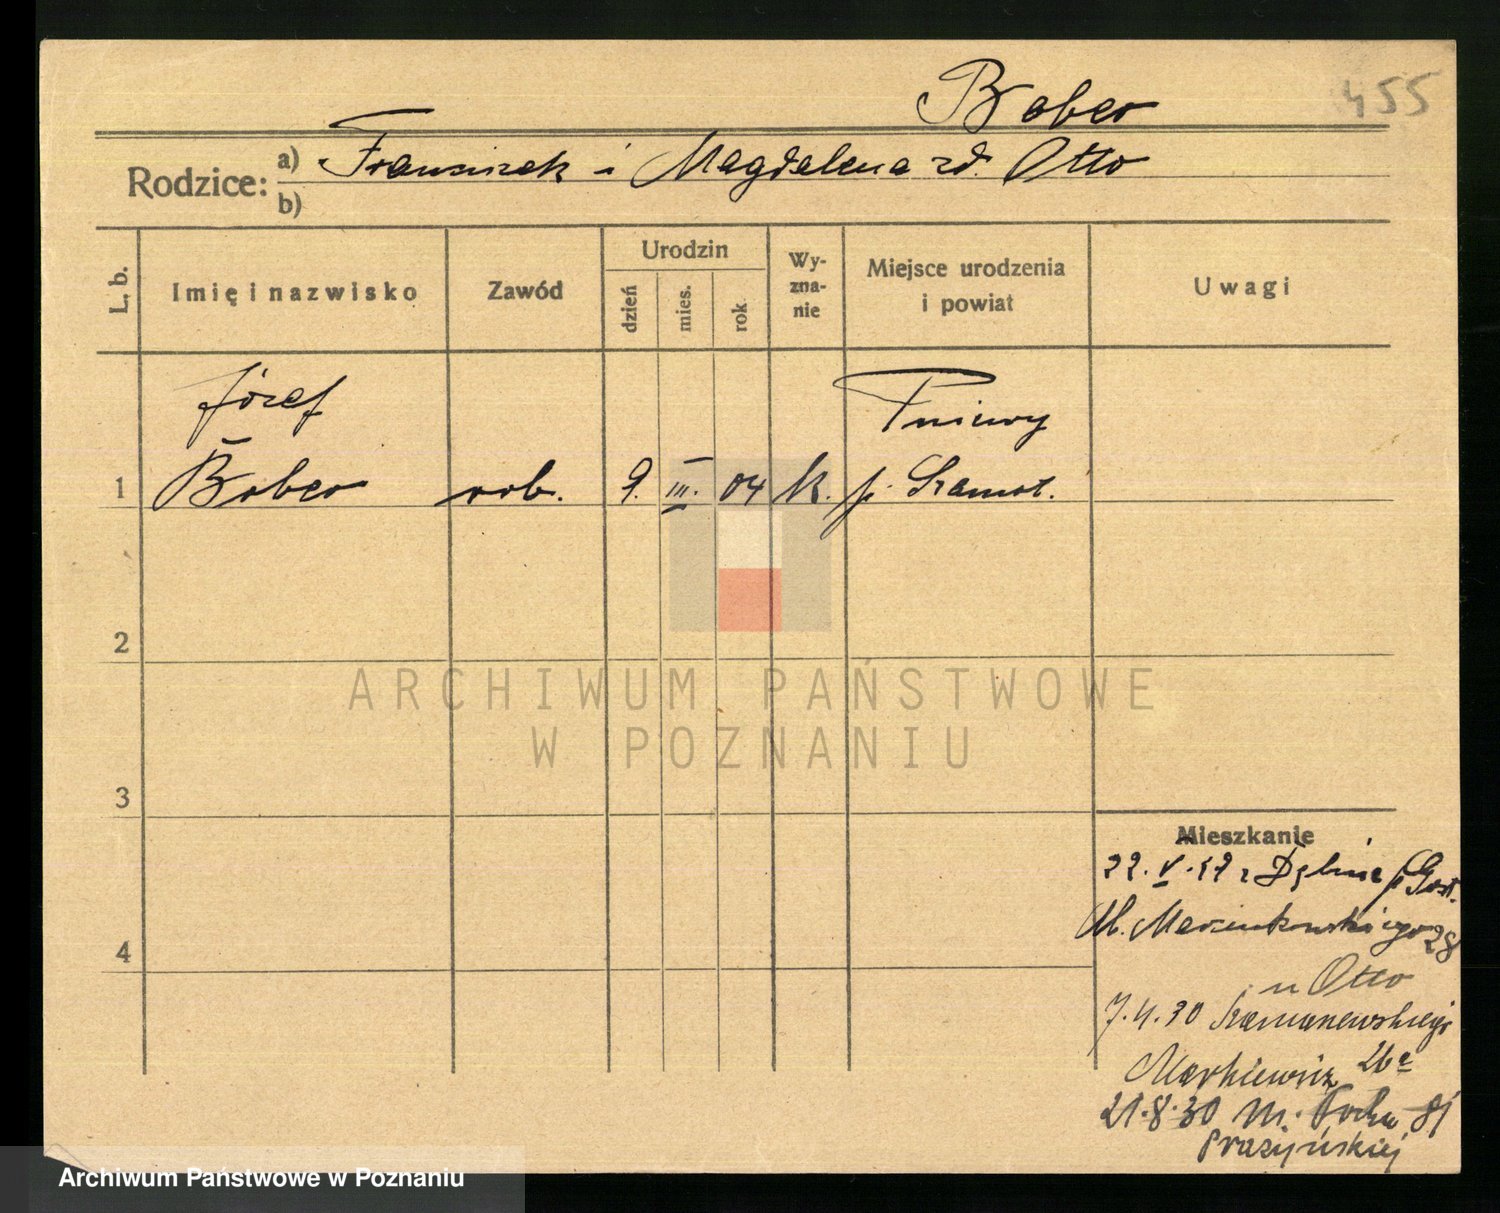 Bober
455
Rodzice: a) Franciszek i Magdalena zd. Otto
b)
L. b.
Imię i nazwisko
Zawód
Urodzin
dzień
mies.
rok
Wy-
zna-
nie
Miejsce urodzenia
i powiat
Uwagi
Józef
Pniewy
1 Bober rob. 9. III. 04 k. p. Szamot.
2
3
4
ARCHIWUM PAŃSTWOWE
W POZNANIU
Mieszkanie
22. V. 27 z p. Gost.
Ul. Marcinkowskiego 28
u Otto
7.4.30
Markiewicz 26a
21.8.30 M. Focha 81
Prażyńskiej
Archiwum Państwowe w Poznaniu